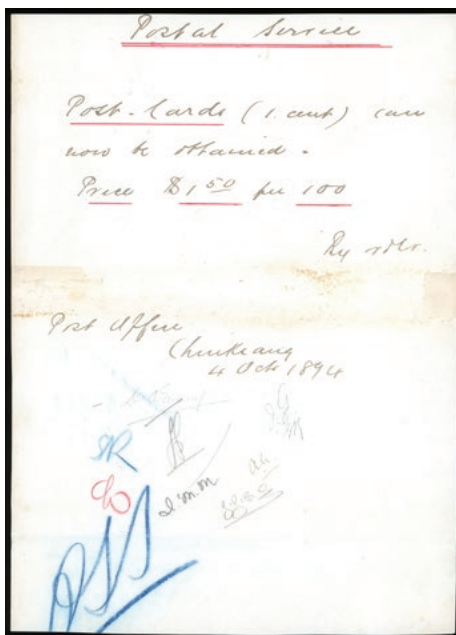 Postal Service
Post-Cards (1. cent) can
now be obtained.
Price $1 50 per 100
By order.
Post Office
Chinkiang
4 Oct 1894
J.m.m.